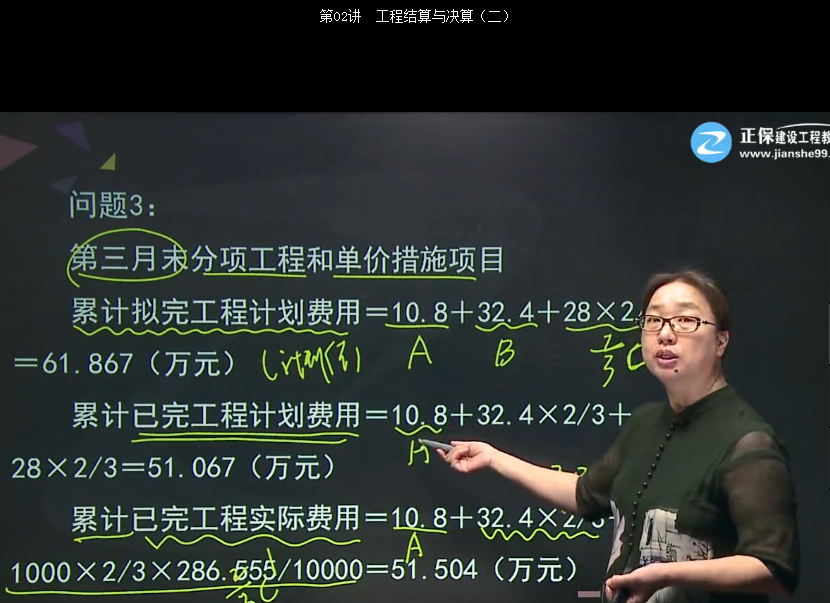 第02讲 工程结算与决算（二）
正保建设工程教
www.jianshe99.
问题3：
第三月末分项工程和单价措施项目
累计拟完工程计划费用＝10.8＋32.4＋28×2
＝61.867（万元）（计划值）
A B 2/3 C
累计已完工程计划费用＝10.8＋32.4×2/3＋
A
28×2/3＝51.067（万元）
累计已完工程实际费用＝10.8＋32.4×2/3
A
1000×2/3×286.555/10000＝51.504（万元）